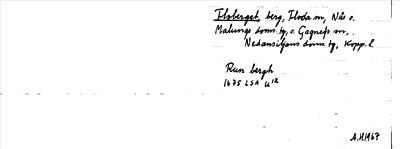 Ilsberget, berg, Floda sn, Nås o.
Malungs doms. tg, o. Gagnefs sn,
Nedansiljans doms. tg, Kopp. l.
Run bergh
1675 LSA U12
A.H 1967